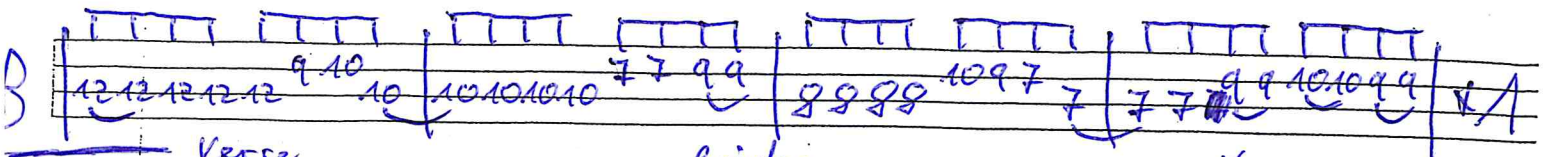 B 12 12 12 12 12 9 10 10 | 10 10 10 10 7 7 9 9 | 8 8 8 8 10 9 7 7 | 7 7 9 9 10 10 9 9 | x1
Verse